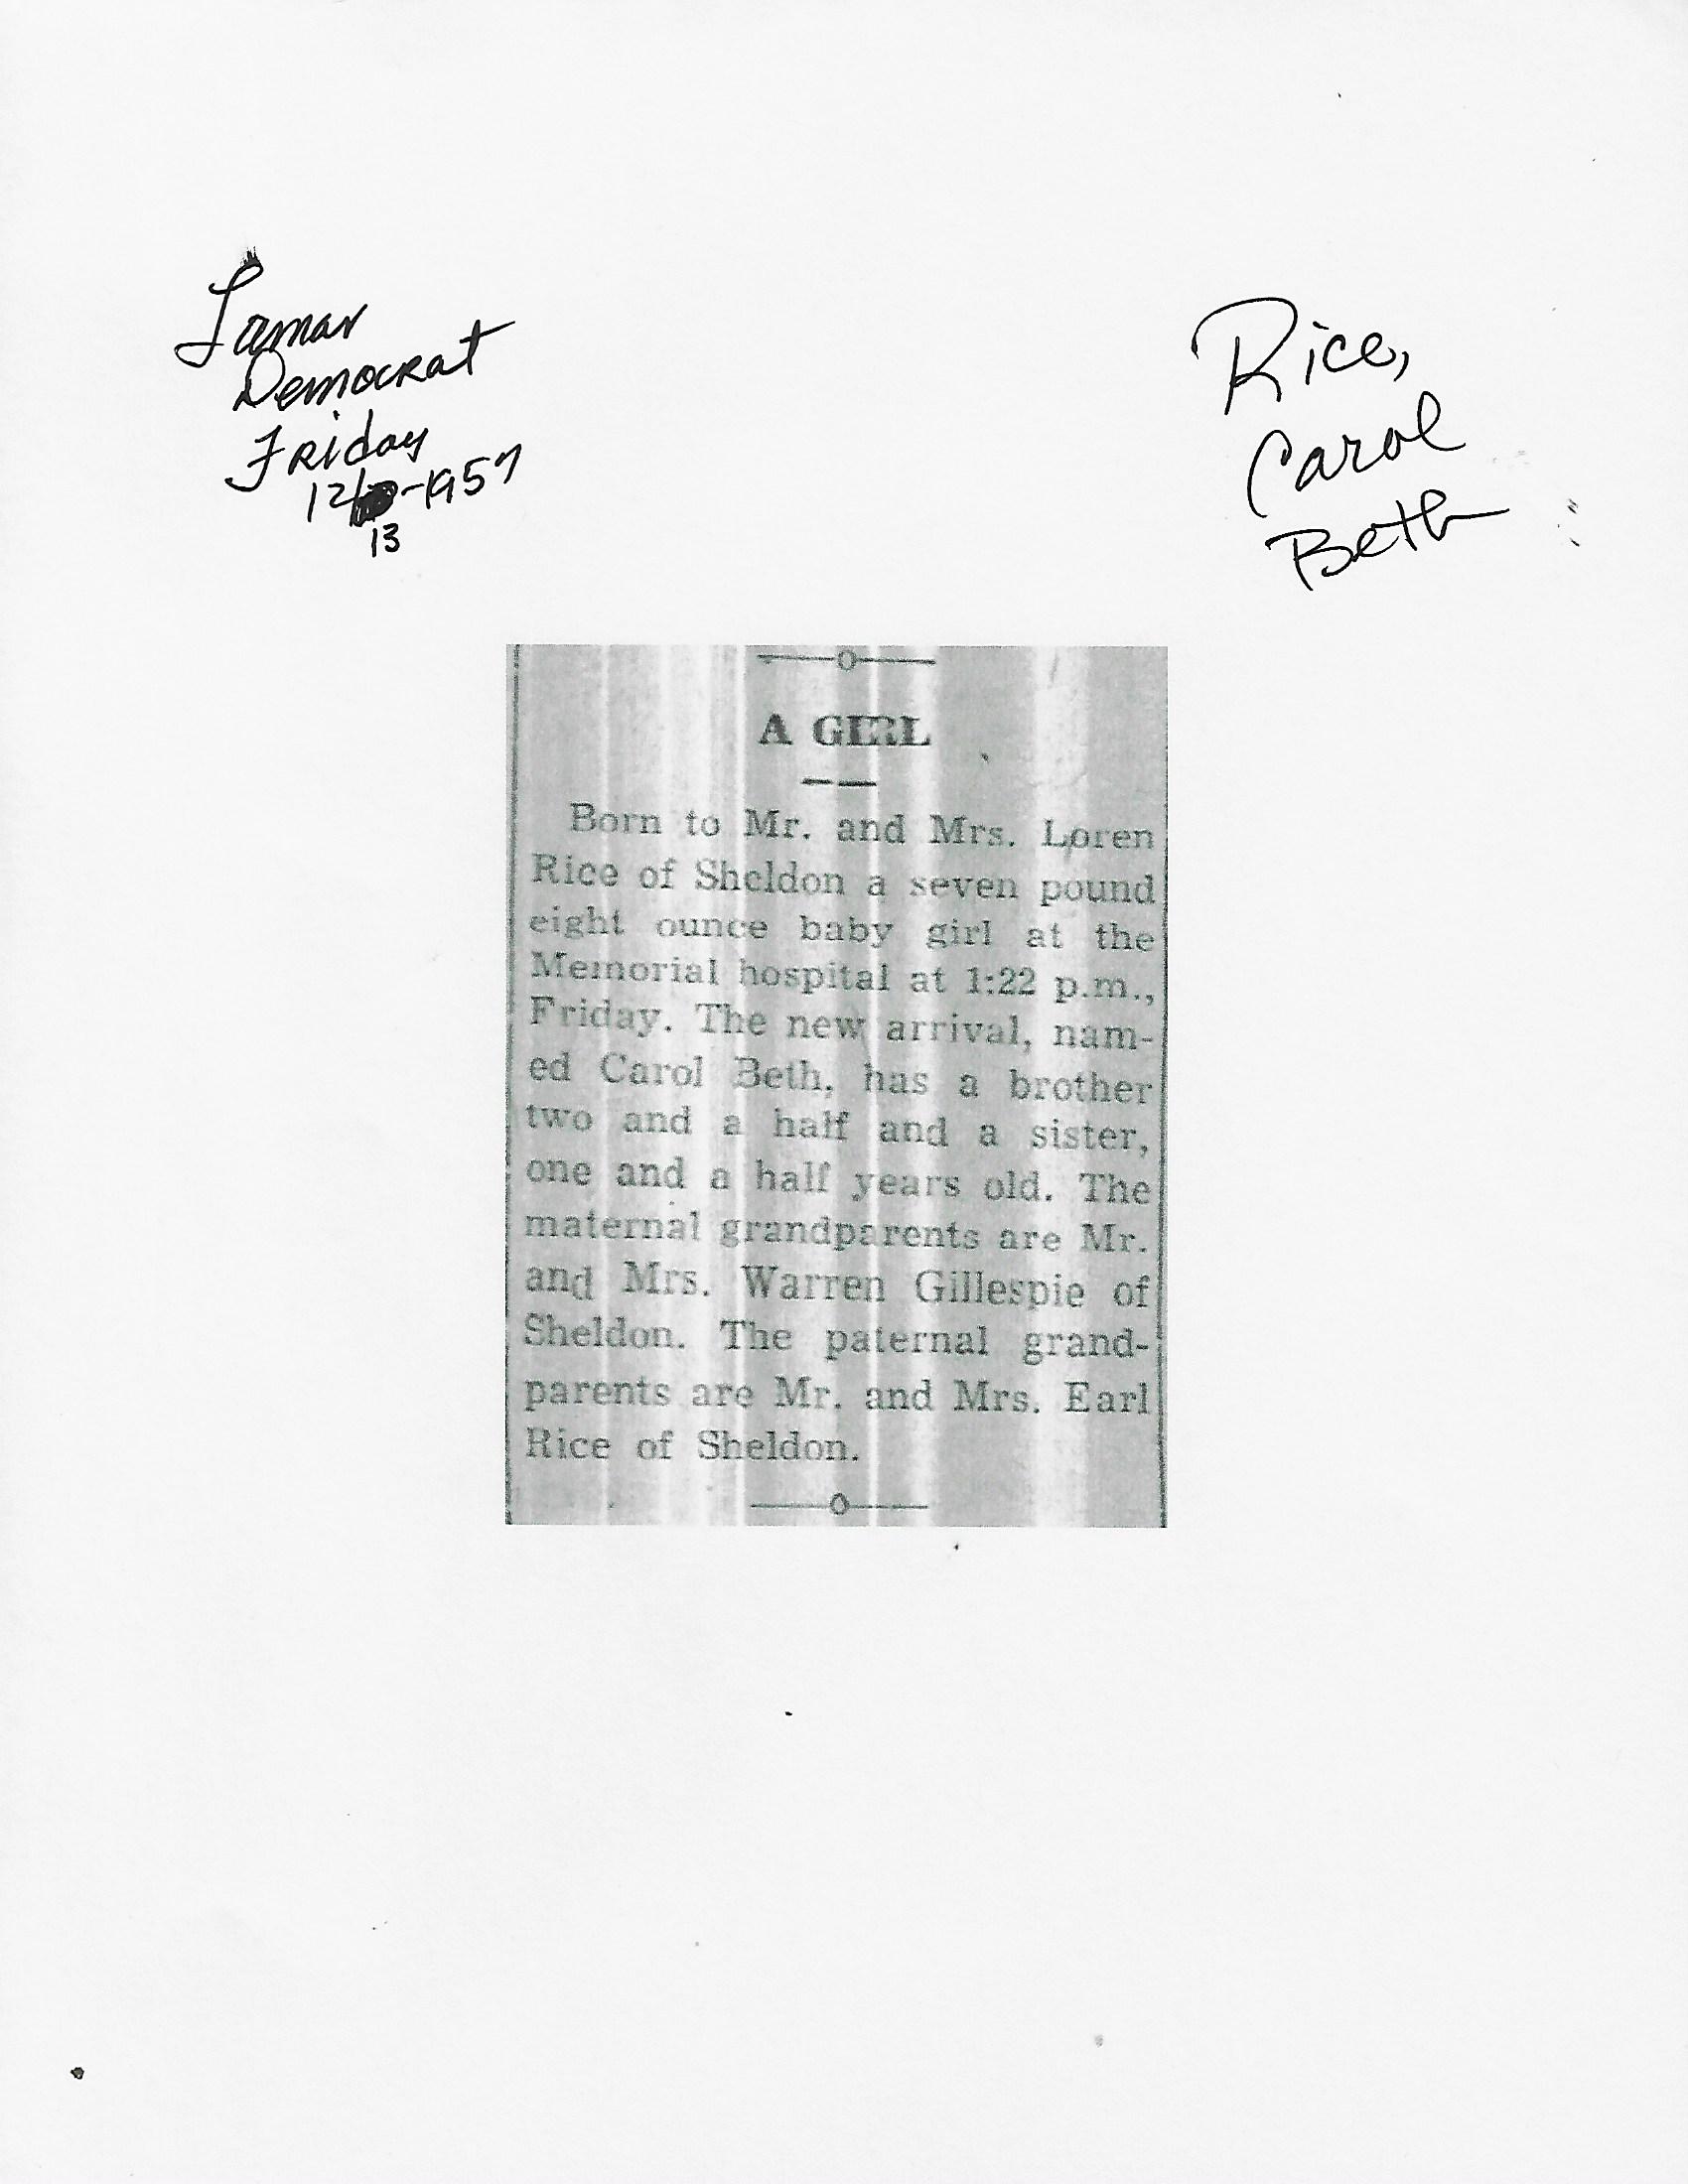 Lamar
Democrat
Friday
12/ -1957
13
Rice,
Carol
Beth
A GIRL
Born to Mr. and Mrs. Loren
Rice of Sheldon a seven pound
eight ounce baby girl at the
Memorial hospital at 1:22 p.m.,
Friday. The new arrival, nam-
ed Carol Beth, has a brother
two and a half and a sister,
one and a half years old. The
maternal grandparents are Mr.
and Mrs. Warren Gillespie of
Sheldon. The paternal grand-
parents are Mr. and Mrs. Earl
Rice of Sheldon.